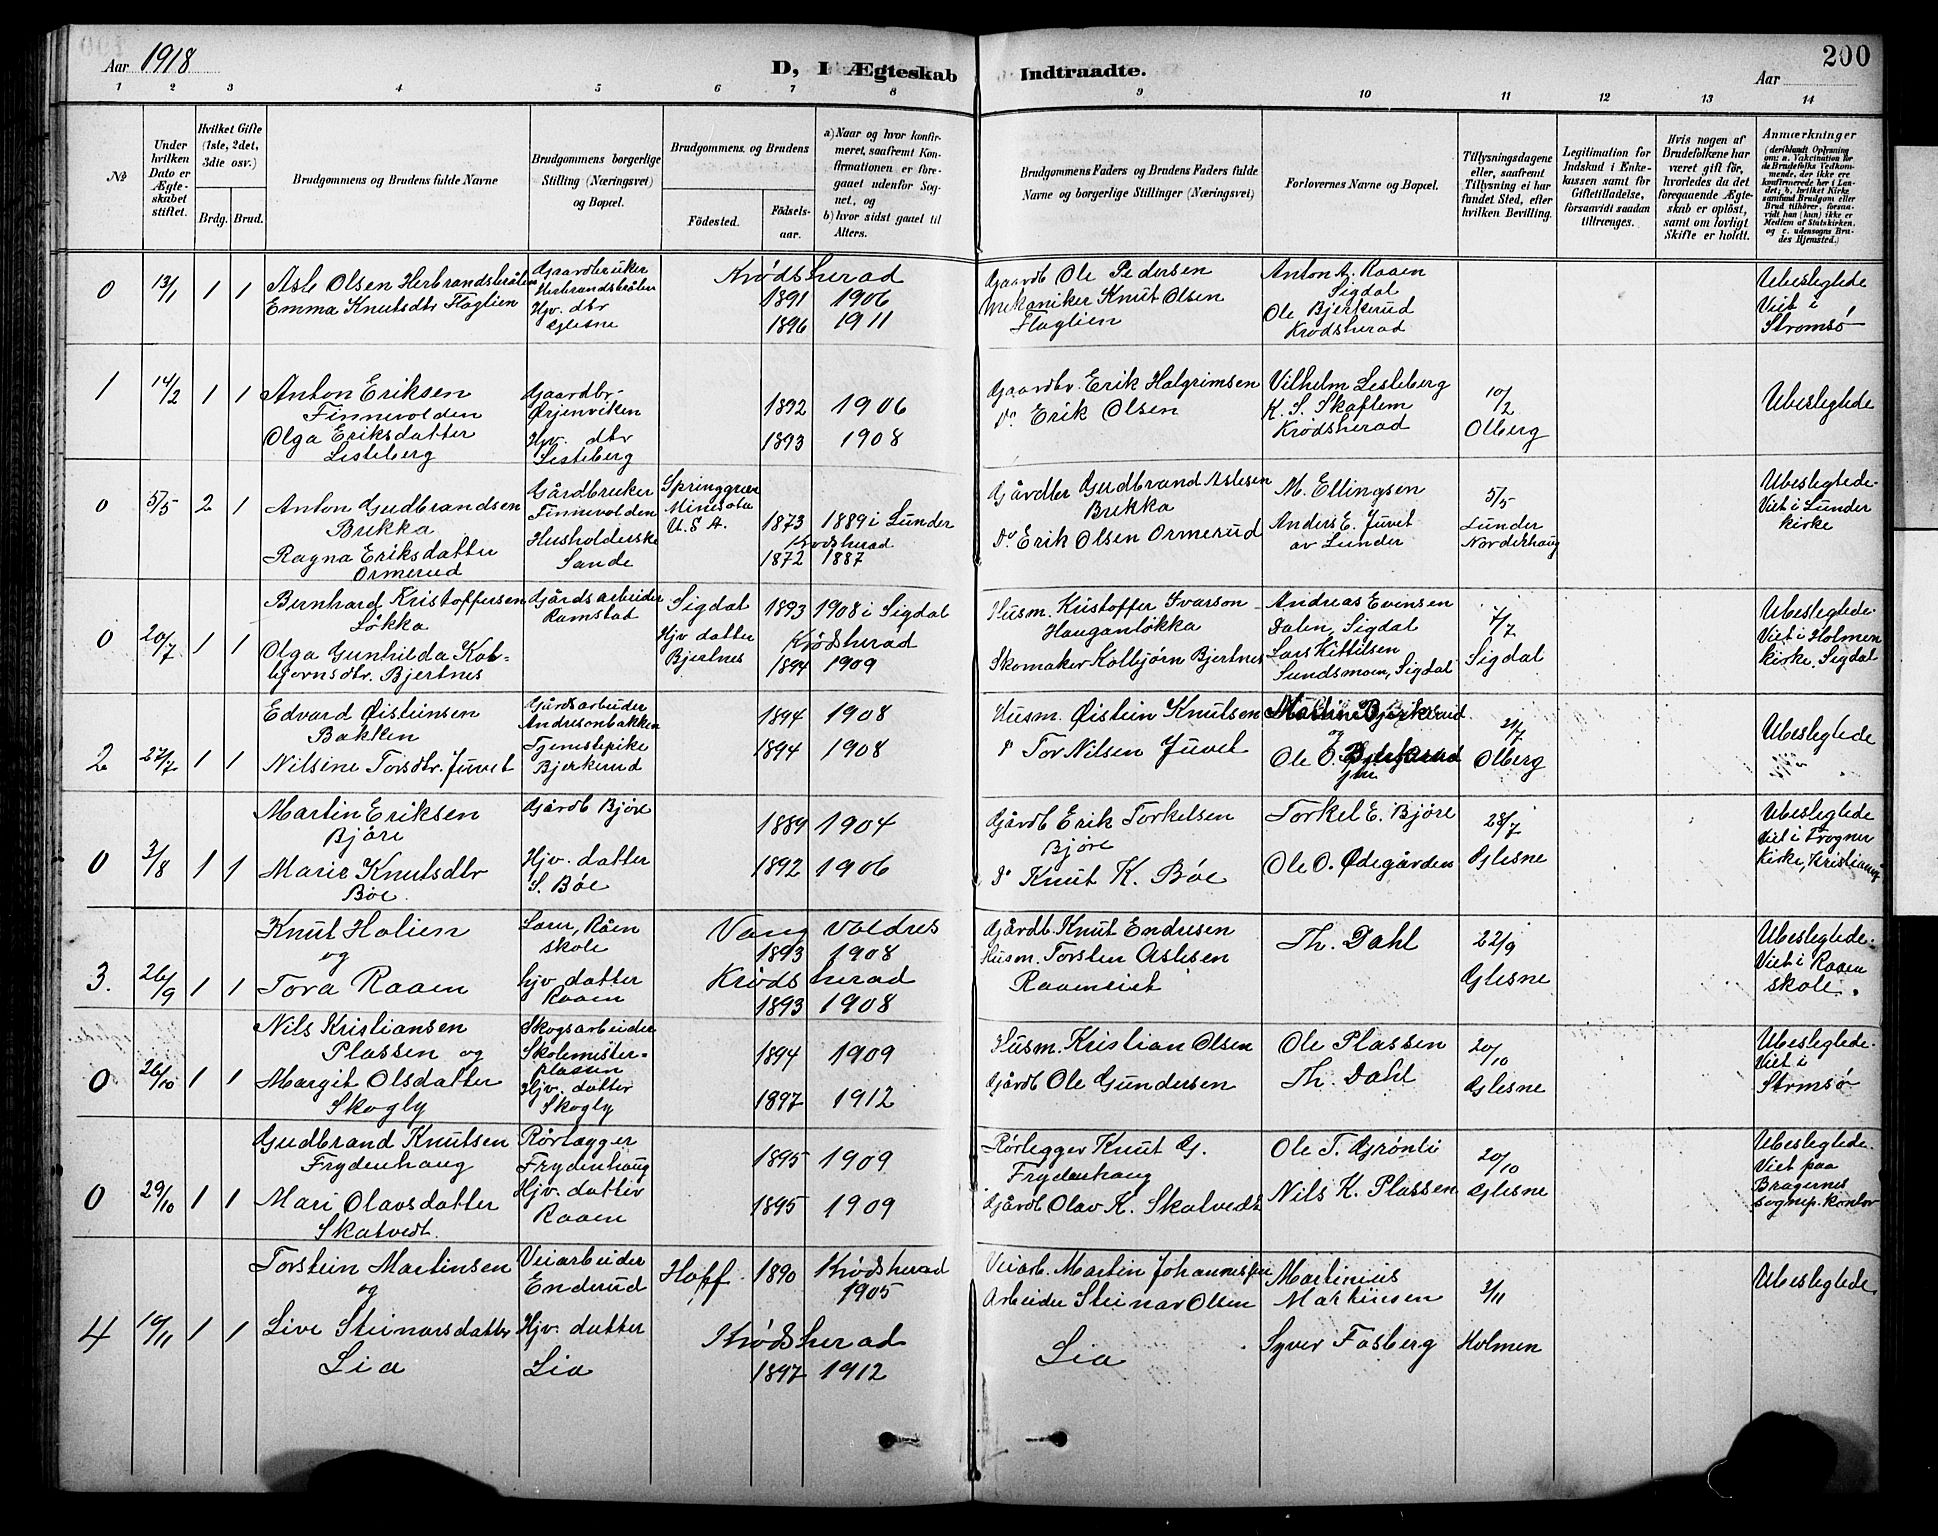 Aar 1918
D, I Ægteskab Indtraadte.
Aar
200
1 2 3 4 5 6 7 8 9 10 11 12 13 14
No
Under hvilken Dato er Ægteskabet stiftet.
Hvilket Gifte (1ste, 2det, 3die osv.)
Brdg. Brud.
Brudgommens og Brudens fulde Navne
Brudgommens borgerlige Stilling (Næringsvei) og Bopæl.
Brudgommens og Brudens
Fødested.
Fødsels-aar.
a) Naar og hvor konfirmeret, saafremt Konfirmationen er foregaaet udenfor Sognet, og
b) hvor sidst gaaet til Alters.
Brudgommens Faders og Brudens Faders fulde Navne og borgerlige Stillinger (Næringsvei)
Forlovernes Navne og Bopæl.
Tillysningsdagene eller, saafremt Tillysning ei har fundet Sted, efter hvilken Bevilling.
Legitimation for Indskud i Enkekassen samt for Giftetilladelse, forsaavidt saadan tiltrænges.
Hvis nogen af Brudefolkene har været gift før, hvorledes da det foregaaende Ægteskab er opløst, samt om lovligt Skifte er holdt.
Anmærkninger
(deriblandt Oplysning om: a. Vakcination for de Brudefolks Vedkommende, der ikke ere konfirmerede her i Landet; b. hvilket Kirkesamfund Brudgom eller Brud tilhører, forsaavidt han (hun) ikke er Medlem af Statskirken, og c. udensogns Brudes Hjemsted.)
0 13/1 1 1
Asle Olsen Herbrandsbråten
Emma Knutsdtr Flaglien
Gaardbruker
Herbrandsbråten
Hjv. dtr
Glesne
Krødsherad
1891 1906
1896 1911
Gaardb Ole Pedersen
Mekaniker Knut Olsen
Flaglien
Anton A. Raaen
Sigdal
Ole Bjerkerud
Krødsherad
Ubeslegtede
Viet i
Strømsø
1 14/2 1 1
Anton Eriksen
Finnevolden
Olga Eriksdatter
Lesteberg
Gaardbr
Ørjenviken
Hjv. dtr
Lesteberg
1892 1906
1893 1908
Gaardbr. Erik Halgrimsen
Do Erik Olsen
Vilhelm Lesteberg
K. S. Skaflem
Krødsherad
10/2
Olberg
Ubeslegtede
0 5/5 2 1
Anton Gudbrandsen
Brekka
Ragna Eriksdatter
Ormerud
Gårdbruker
Finnevolden
Husholderske
Sande
Springgreen
Minesota
U.S.A.
1873 1889 i Lunder
Krødsherad
1872 1887
Gårdbr Gudbrand Aslesen
Brekka
Do Erik Olsen Ormerud
M. Ellingsen
Anders E. Juvet
av Lunder
5/5
Lunder
Norderhaug
Ubeslegtede
Viet i Lunder
kirke
0 20/7 1 1
Bernhard Kristoffersen
Løkka
Olga Gunhilda Kol-
bjørnsdtr. Bjertnes
Gårdsarbeider
Ramstad
Sigdal
Hjv datter
Bjertnes
1893 1908 i Sigdal
Krødsherad
1894 1909
Husm. Kristoffer Ivarson
Hauganløkka
Skomaker Kolbjørn Bjertnes
Andreas Evensen
Dalen, Sigdal
Lars Kittilsen
Sundsmoen, Sigdal
7/7
Sigdal
Ubeslegtede
Viet i Holmen
kirke, Sigdal
2 27/7 1 1
Edvard Øisteinsen
Bakken
Nilsine Torsdtr. Juvet
Gårdsarbeider
Andresonbakken
Tjenestepike
Bjerkerud
1894 1908
1894 1908
Husm. Øistein Knutsen
Do Tor Nilsen Juvet
Bjerkerud
og
Ole O.
21/7
Olberg
Ubeslegtede
0 3/8 1 1
Martin Eriksen
Bjøre
Marie Knutsdtr
Bøe.
Gårdb Bjøre
Hjv. datter
S. Bøe
1889 1904
1892 1906
Gårdb Erik Torkelsen
Bjøre
Do Knut K. Bøe
Torkel E. Bjøre
Ole O. Ødegården
28/7
Glesne
Ubeslegtede
Viet i Frogner
Kirke, Kristiania
3. 26/9 1 1
Knut Holien
og
Tora Raaen
Lærer, Råen
skole
hjv datter
Raaen
Vang Valdres
1893 1908
Krødsherad
1893 1908
Gårdb. Knut Endresen
Husm. Torsten Aslesen
Raaeneiet
Th. Dahl
22/9
Glesne
Ubeslegtede.
Viet i Raaen
skole.
0 26/10 1 1
Nils Kristiansen
Plassen og
Margit Olsdatter
Skogly
Skogsarbeider
Skolemester-
plassen
Hjv. datter
Skogly
1894 1909
1897 1912
Husm. Kristian Olsen
Gårdb Ole Gundersen
Ole Plassen
Th. Dahl
20/10
Glesne
Ubeslegtede.
Viet i
Strmsø
0 29/10 1 1
Gudbrand Knutsen
Frydenhaug
Mari Olavsdatter
Skatvedt.
Rørlægger
Frydenhaug
Hjv. datter
Raaen
1895 1909
1895 1909
Rørlegger Knut G.
Frydenhaug
Gårdb Olav K. Skatvedt
Ole T. Grønli
Nils K. Plassen
20/10
Glesne
Ubeslegtede
Viet paa
Bragernes
sognep. kontor
4 10/11 1 1
Torstein Martinsen
og
Live Steinarsdatter
Lia
Veiarbeider
Enderud
Hjv. datter
Lia
Hoff
1890 Krødsherad
1905
Krødsherad
1897 1912
Veiarb. Martin Johannessen
Arbeider Steinar Olsen
Lia
Martinius
Martinsen
Syver Fosberg
3/11
Holmen
Ubeslegtede